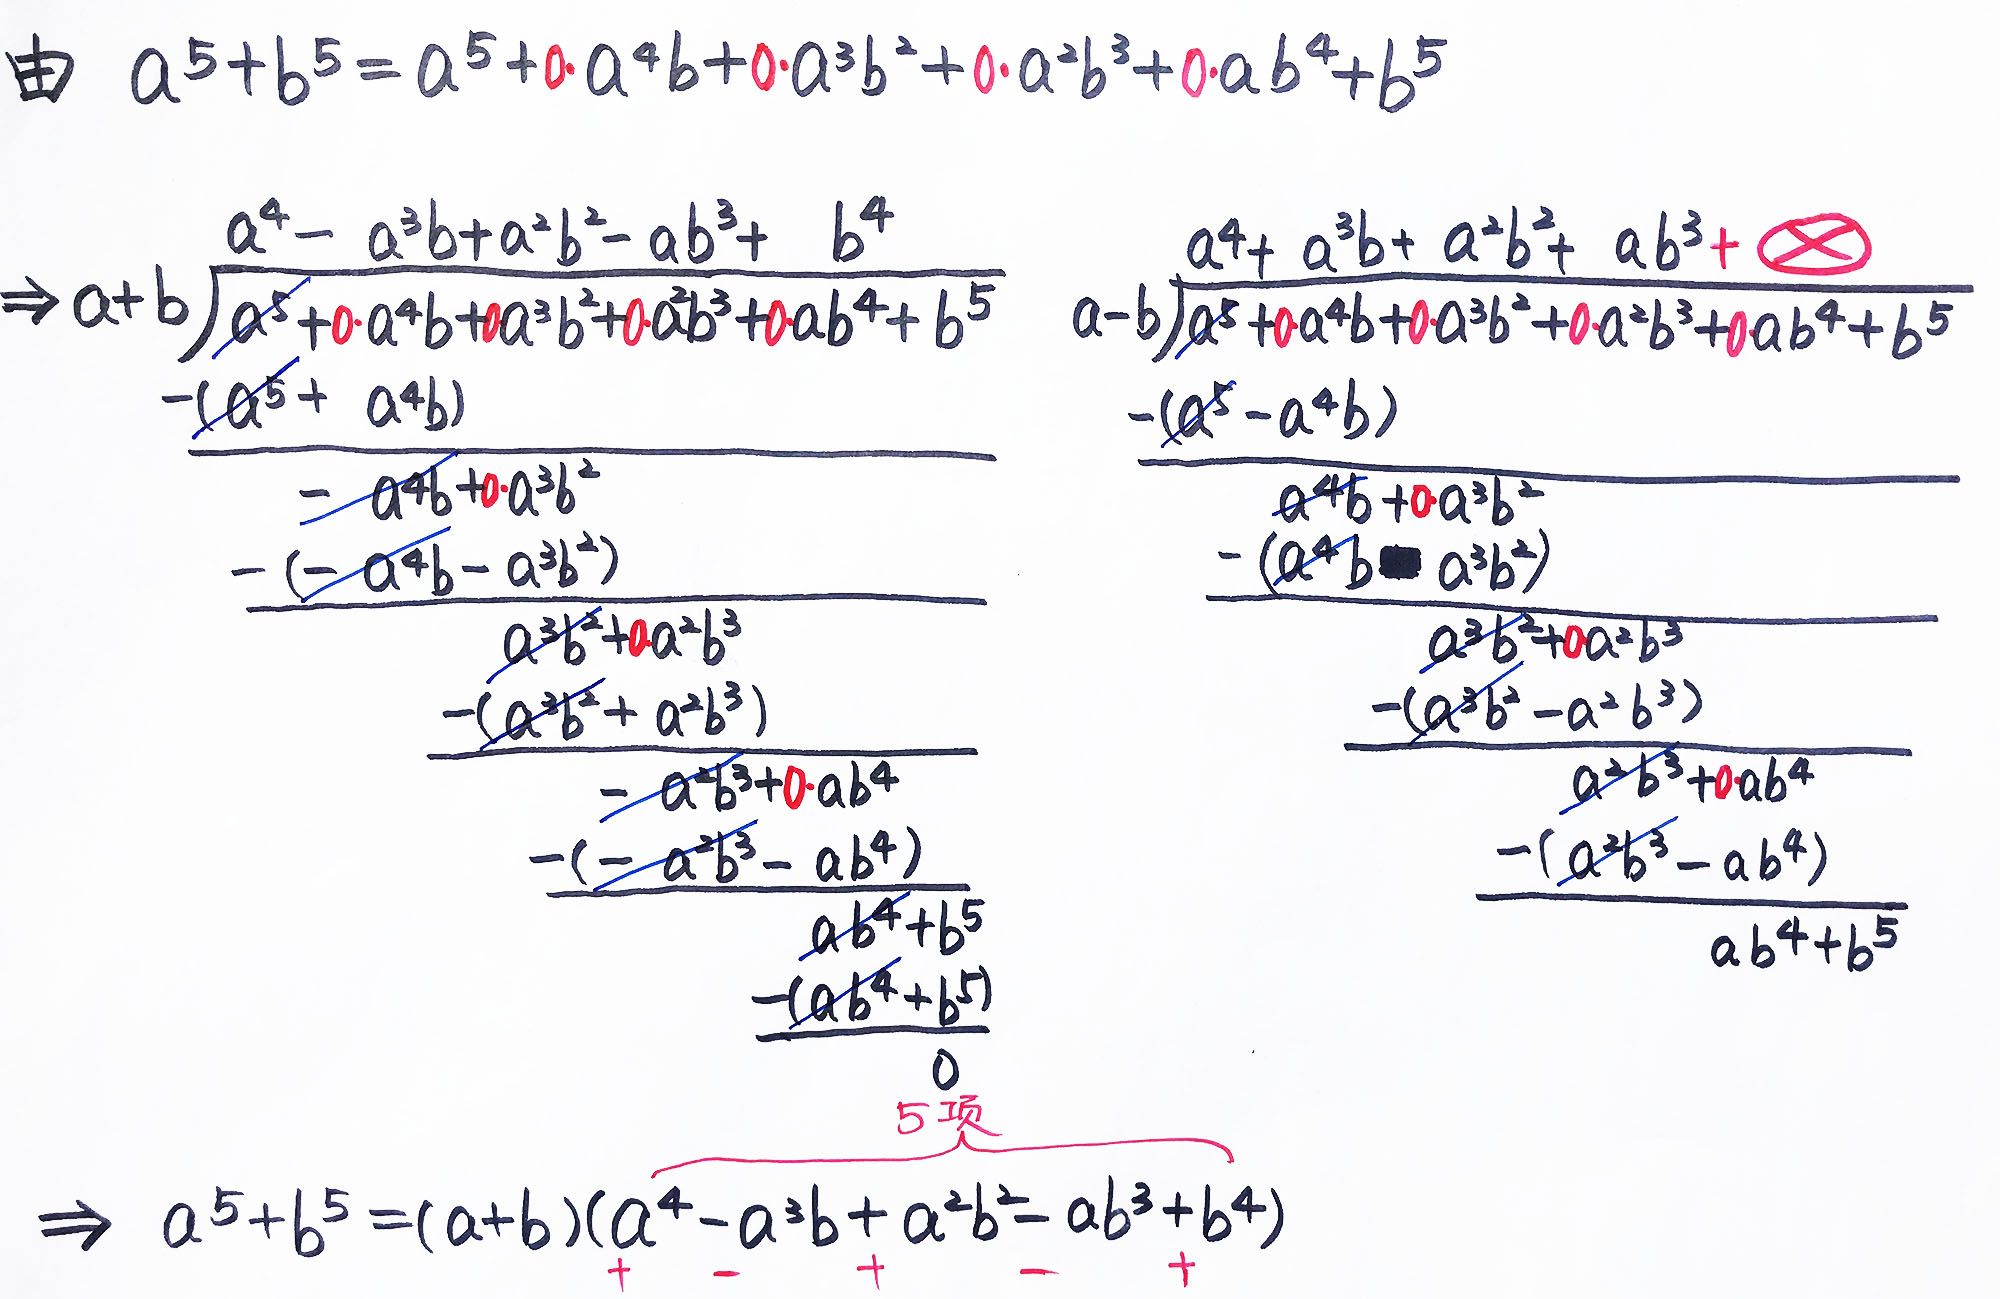 由 a⁵+b⁵=a⁵+0·a⁴b+0·a³b²+0·a²b³+0·ab⁴+b⁵
a⁴- a³b+a²b²-ab³+ b⁴
⇒ a+b)a⁵+0·a⁴b+0a³b²+0·a²b³+0·ab⁴+b⁵
-(a⁵+ a⁴b)
- a⁴b+0·a³b²
-(- a⁴b-a³b²)
a³b²+0a²b³
-(a³b²+ a²b³)
- a²b³+0·ab⁴
-(- a²b³- ab⁴)
ab⁴+b⁵
-(ab⁴+b⁵)
0
a⁴+ a³b+ a²b²+ ab³+
a-b)a⁵+0·a⁴b+0·a³b²+0·a²b³+0·ab⁴+b⁵
-(a⁵-a⁴b)
a⁴b+0·a³b²
-(a⁴b a³b²)
a³b²+0a²b³
-(a³b²-a²b³)
a²b³+0·ab⁴
-(a²b³-ab⁴)
ab⁴+b⁵
5项
⇒ a⁵+b⁵=(a+b)(a⁴-a³b+a²b²-ab³+b⁴)
+ - + - +